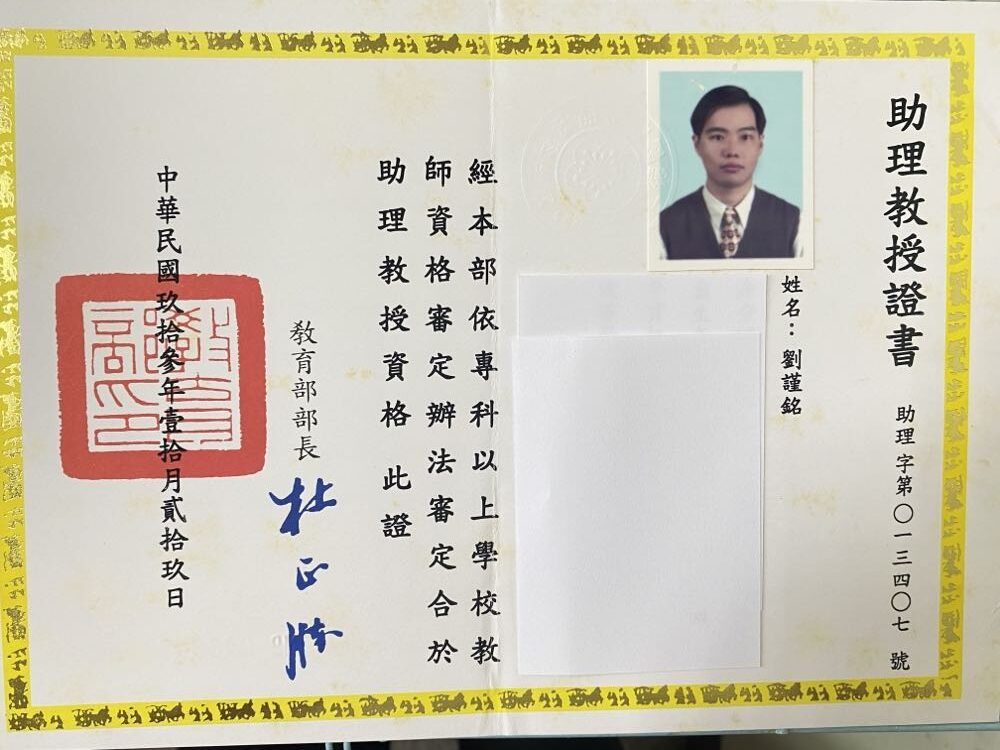 助理教授證書
助理字第〇一三四〇〇七號
姓名：劉謹銘
經本部依專科以上學校教
師資格審定辦法審定合於
助理教授資格 此證
教育部部長
杜正勝
中華民國玖拾參年壹拾月貳拾玖日